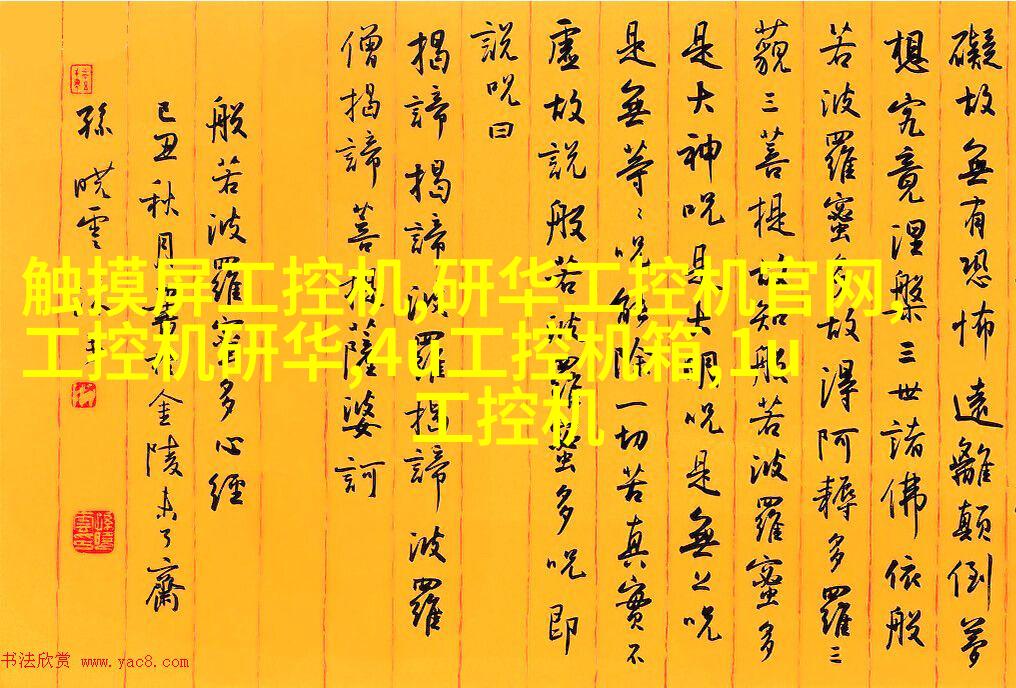 礙故無有恐怖遠離顛倒夢
想究竟涅槃三世諸佛依般
若波羅蜜多故得阿耨多羅三
藐三菩提故知般若波羅蜜多
是大神呪是大明呪是無上呪
是無等〻呪能除一切苦真實不
虛故說般若波羅蜜多呪即
說呪曰
揭諦揭諦波羅揭諦波羅
僧揭諦菩提薩婆訶
般若波羅蜜多心經
己丑秋月於金陵未了齋
孫曉雲
触摸屏工控机,研华工控机官网,
工控机研华,4u工控机箱,1u
工控机
书法欣赏 www.yac8.com